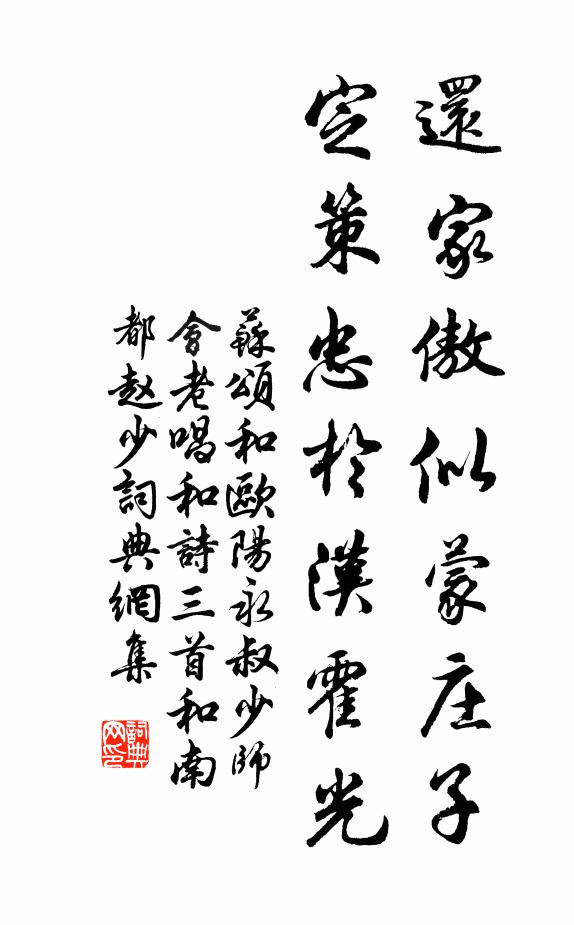 還家傲似蒙庄子
定策忠於漢霍光
蘇頌和歐陽永叔少師
會老唱和詩三首和南
都赵少詞典網集
詞典
网印